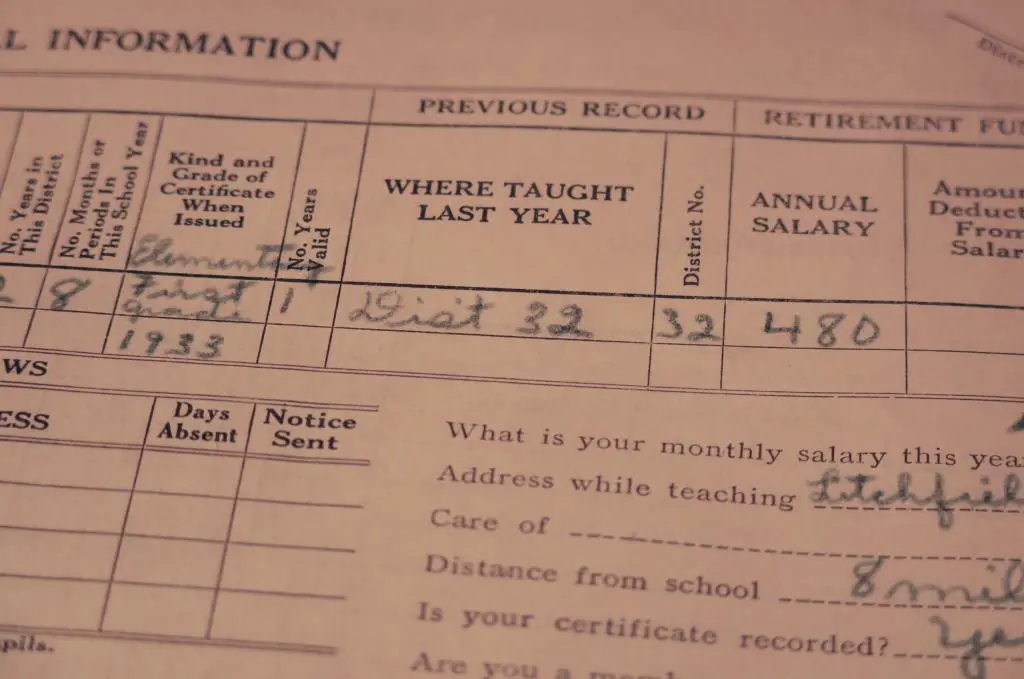 L INFORMATION
PREVIOUS RECORD
RETIREMENT FU
No. Years in
This District
No. Months or
Periods In
This School Year
Kind and
Grade of
Certificate
When
Issued
No. Years
Valid
WHERE TAUGHT
LAST YEAR
District No.
ANNUAL
SALARY
Amoun
Deduct
From
Salar
Elementary
2 8 First 1 Dist 32 32 480
grade
1933
WS
ESS
Days
Absent
Notice
Sent
pils.
What is your monthly salary this yea
Address while teaching Litchfiel
Care of
Distance from school 8 mil
Is your certificate recorded? Ye
Are you a mem